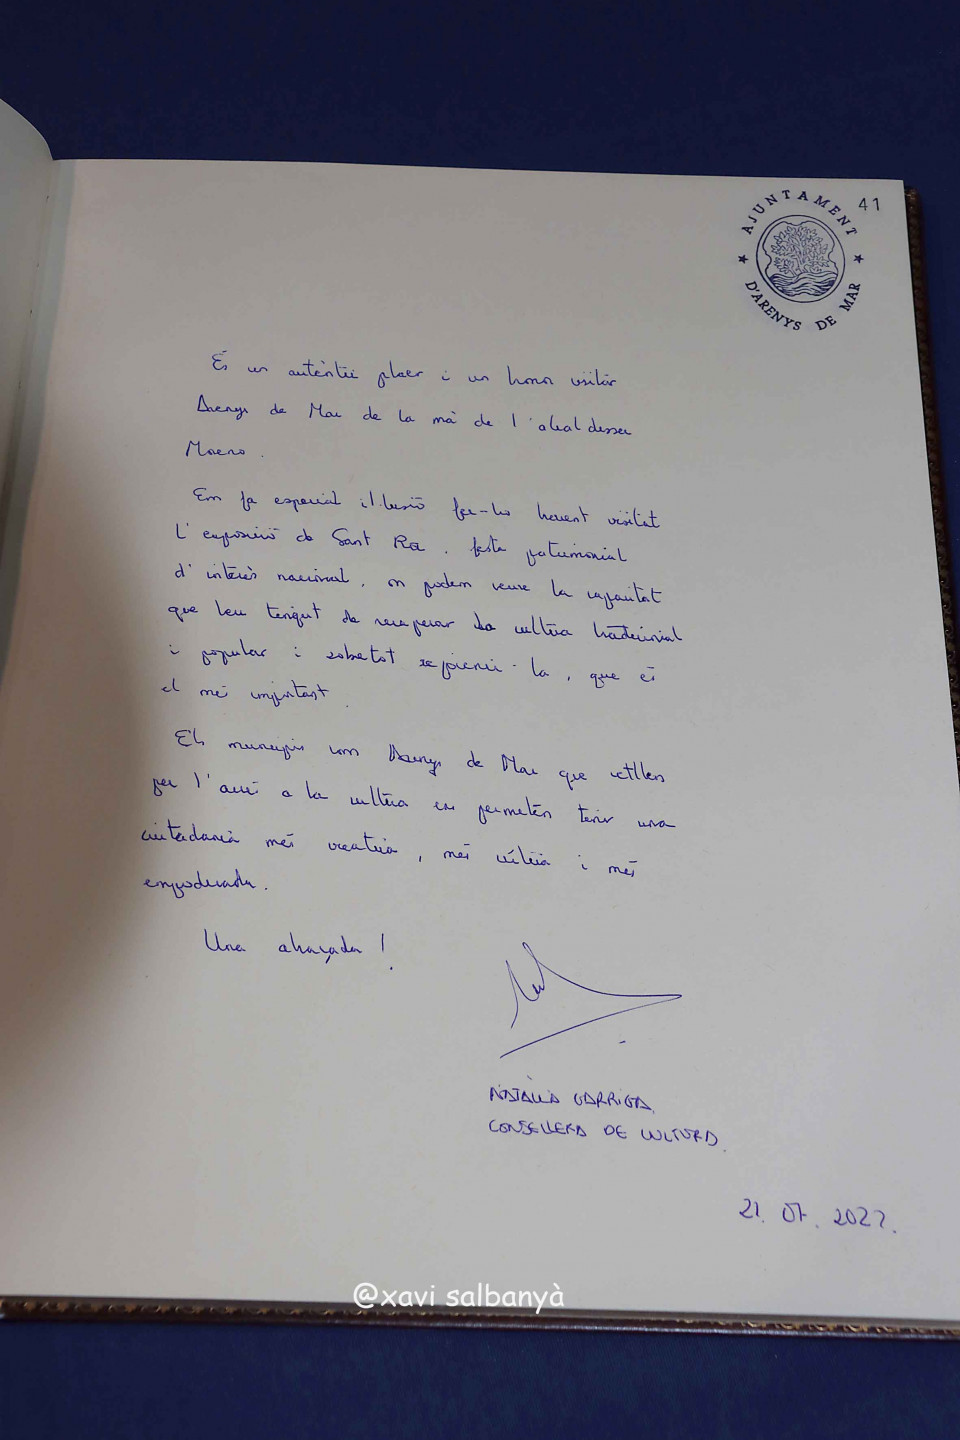 41
AJUNTAMENT
D'ARENYS DE MAR
És un autèntic plaer i un honor visitar
Arenys de Mar de la mà de l'alcaldessa
Moreno.
Em fa especial il·lusió fer-ho havent visitat
l'exposició de Sant Roc, festa patrimonial
d'interès nacional, on podem veure la capacitat
que heu tengut de recuperar la cultura tradicional
i popular i sobretot , que és
el més important.
Els municipis com Arenys de Mar que vetllen
per l'accés a la cultura ens permeten tenir una
ciutadania més creativa, més crítica i més
empoderada.
Una abraçada!
NATÀLIA GARRIGA.
CONSELLERA DE CULTURA.
21. 07. 2022.
@xavi salbanyà